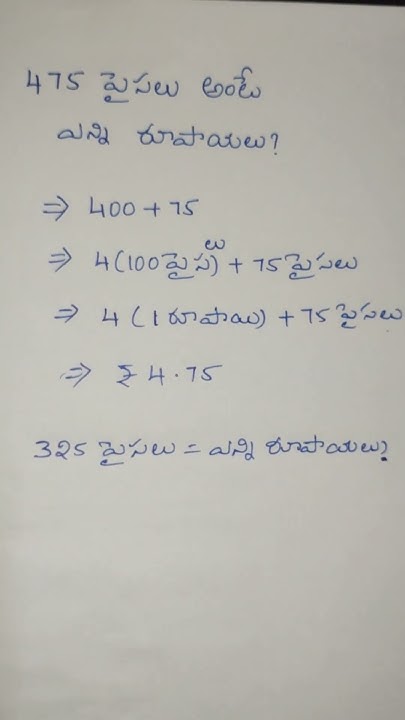 475 పైసలు అంటే
ఎన్ని రూపాయలు?
⇒ 400 + 75
⇒ 4(100 పైసలు) + 75 పైసలు
⇒ 4 (1 రూపాయి) + 75 పైసలు
⇒ ₹ 4.75
325 పైసలు = ఎన్ని రూపాయలు?